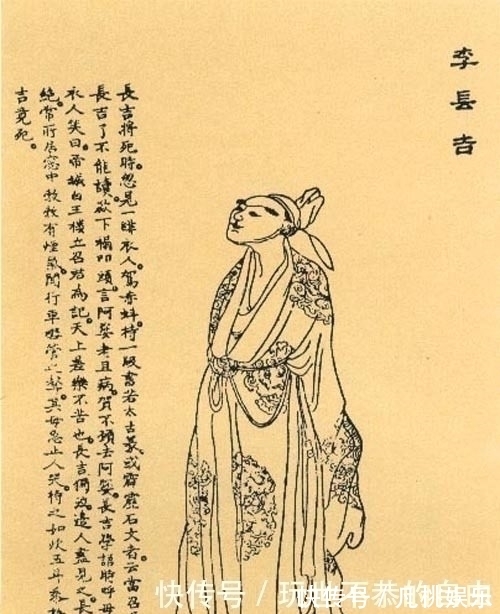 李長吉
長吉将死時。忽見一緋衣人。駕赤虯。持一版書。若太古篆。或霹靂石文者。云當召
長吉了不能讀。欻下榻叩頭。言阿㜷老且病。賀不願去。阿㜷。長吉學語時呼母
衣人笑曰。帝城白玉樓立召君為記。天上差樂不苦也。長吉獨泣。邊人盡見之。長
絶。常所居窓中勃勃有煙氣。聞行車嘒管之聲。其母急止人哭。待之如炊五斗黍
吉竟死。
快传号 /